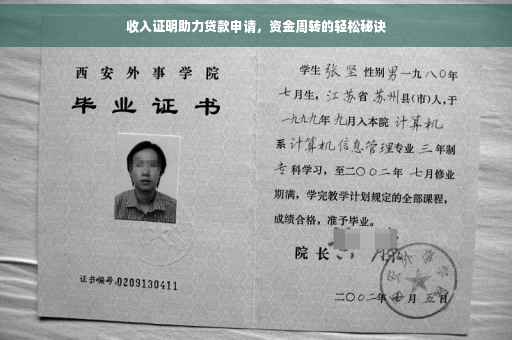 收入证明助力贷款申请，资金周转的轻松秘诀
西安外事学院
毕业证书
证书编号:0209130411
学生 张坚 性别 男 一九八〇年
七月生，江苏省 苏州县(市)人，于
一九九九年 九月入本院 计算机
系 计算机信息管理专业 三 年制
专 科学习，至二〇〇二年 七月修业
期满，学完教学计划规定的全部课程，
成绩合格，准予毕业。
院长
二〇〇二年 七 月 五 日